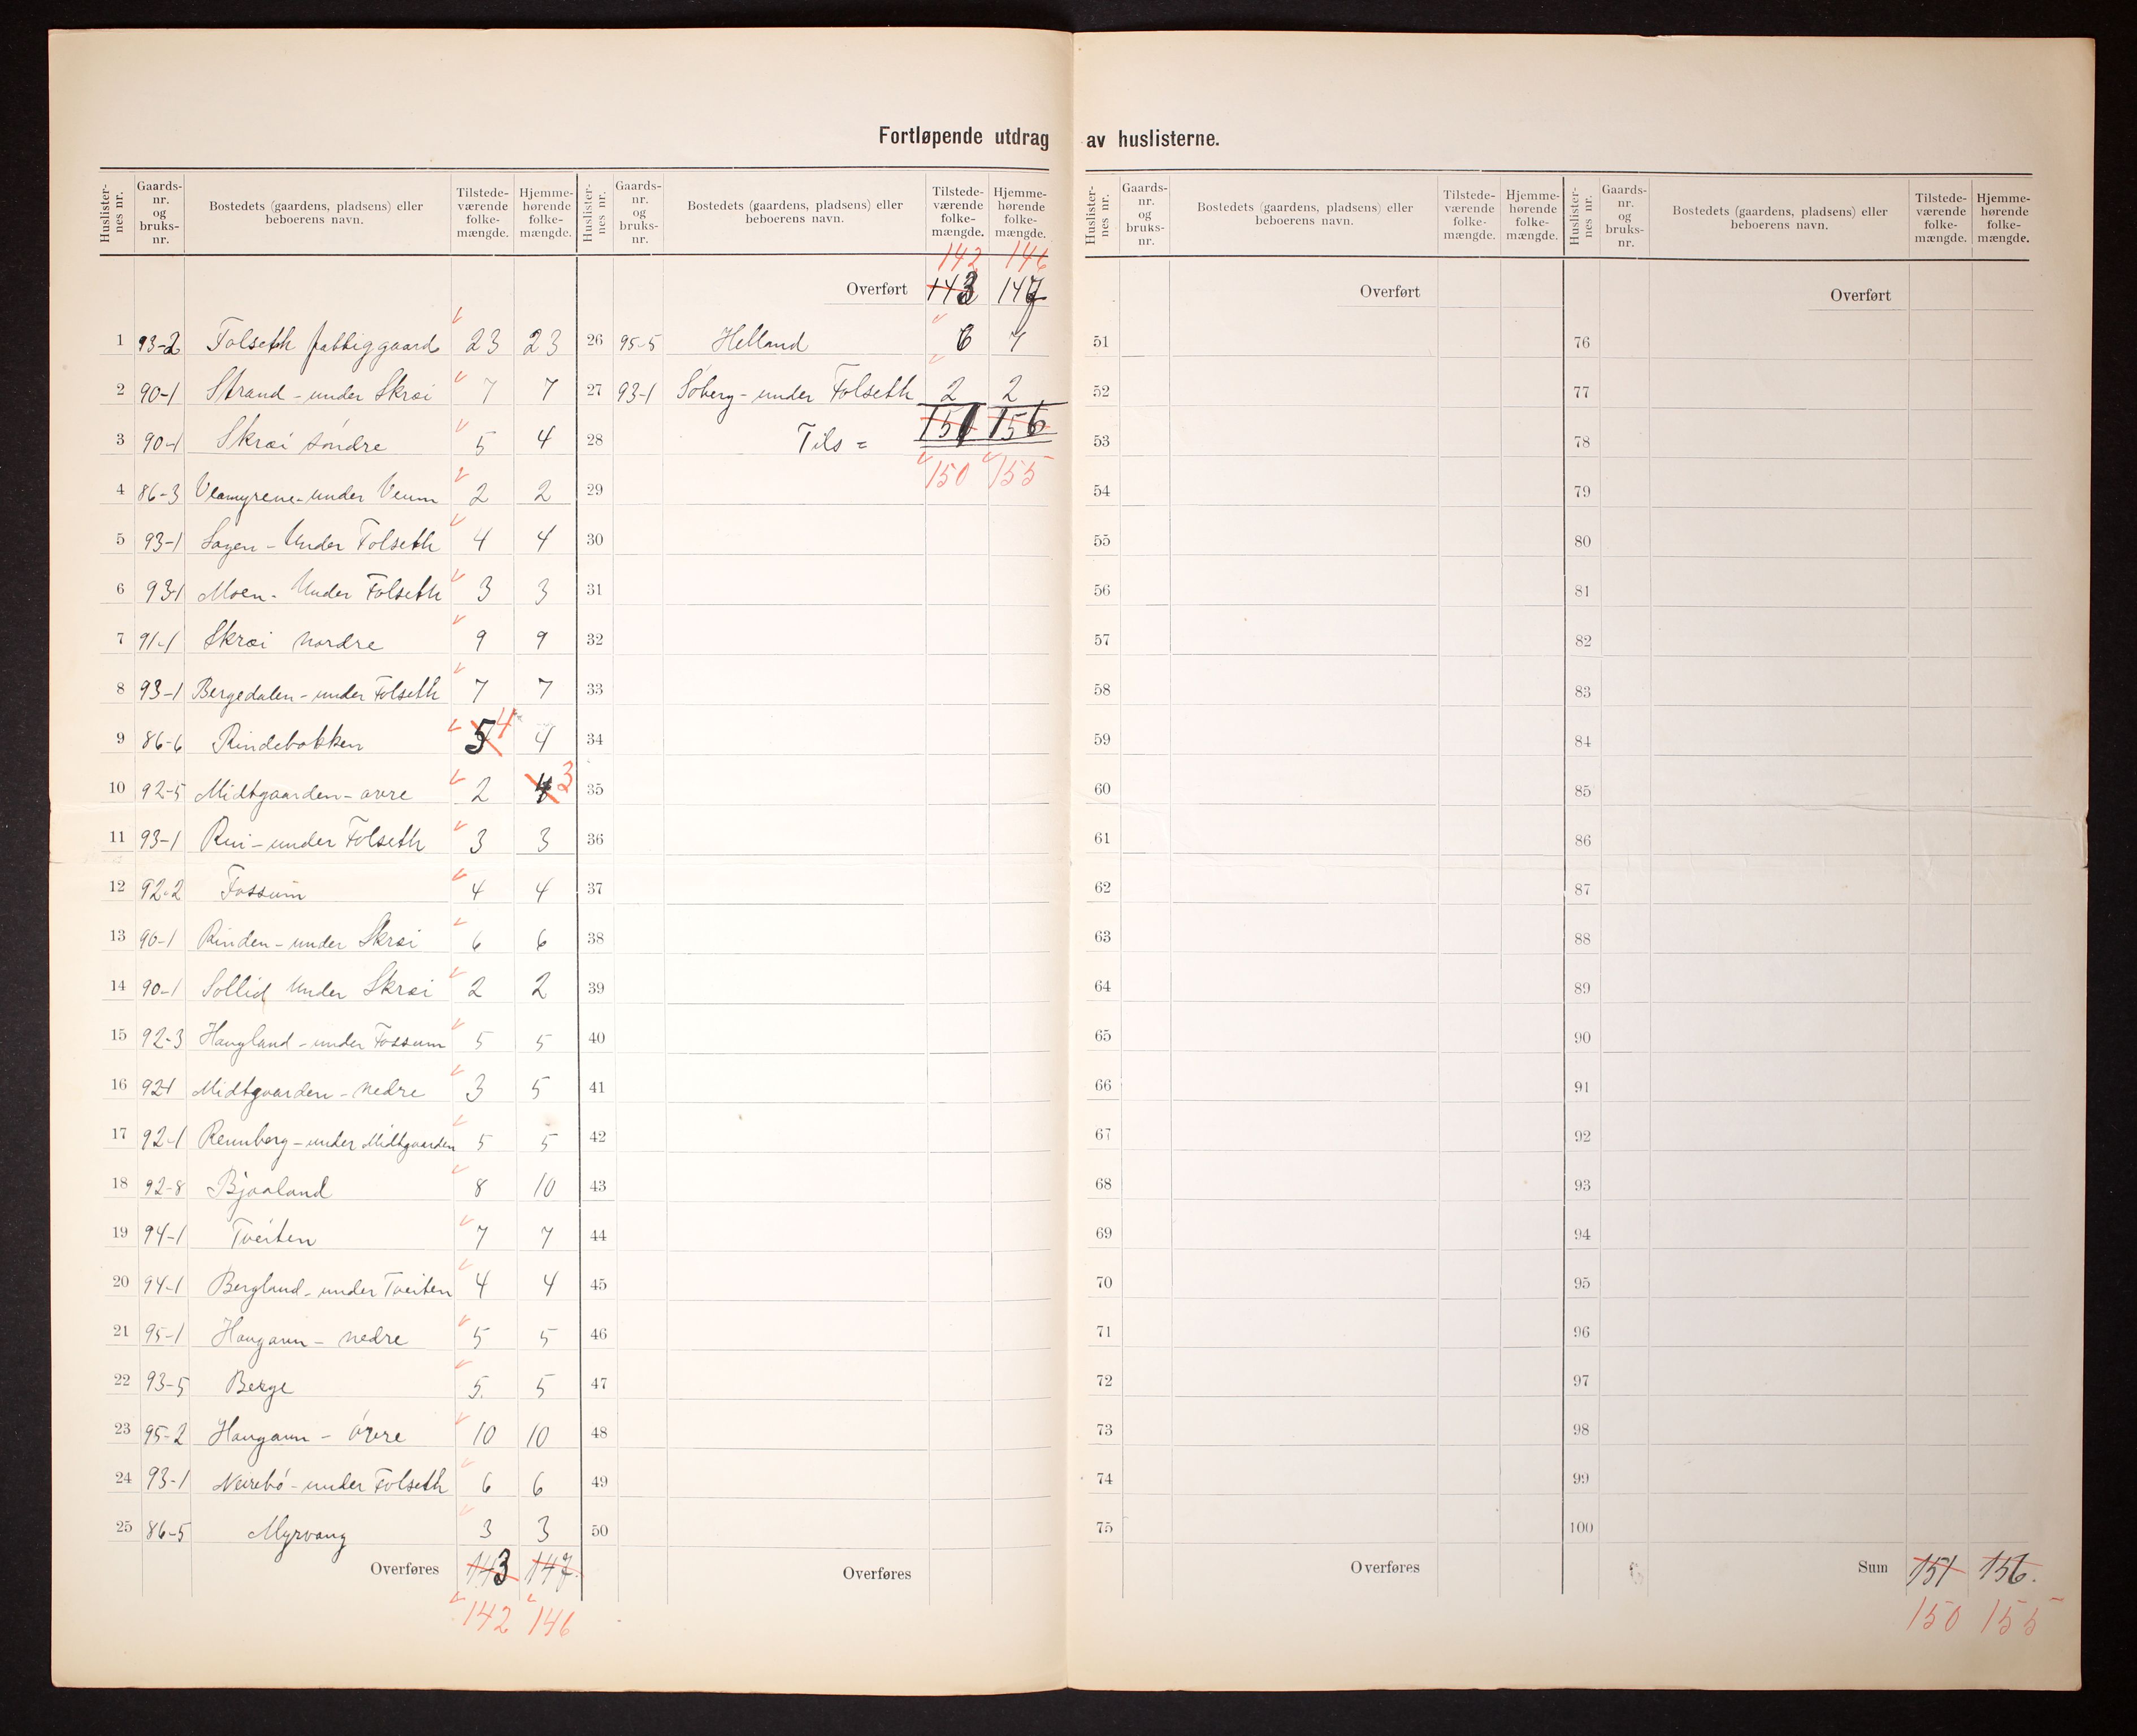 Fortløpende utdrag av huslisterne.
Huslister-nes nr. Gaards-nr. og bruks-nr. Bostedets (gaardens, pladsens) eller beboerens navn. Tilstede-værende folke-mængde. Hjemme-hørende folke-mængde.
1 93-2 Folseth fattiggaard 23 23
2 90-1 Strand - under Skrøi 7 7
3 90-1 Skrøi søndre 5 4
4 86-3 Vlamyrene - under Veum 2 2
5 93-1 Sagen - Under Folseth 4 4
6 93-1 Moen - Under Folseth 3 3
7 91-1 Skrøi nordre 9 9
8 93-1 Bergedalen - under Folseth 7 7
9 86-6 Rindebakken 5 4 4
10 92-5 Midtgaarden - øvre 2 4 3
11 93-1 Rui - under Folseth 3 3
12 92-2 Fossum 4 4
13 90-1 Rinden - under Skrøi 6 6
14 90-1 Sollid Under Skrøi 2 2
15 92-3 Haugland - under Fossum 5 5
16 92-1 Midtgaarden - nedre 3 5
17 92-1 Rennberg - under Midtgaarden 5 5
18 92-8 Bjaaland 8 10
19 94-1 Tveiten 7 7
20 94-1 Bergland - under Tveiten 4 4
21 95-1 Haugann - nedre 5 5
22 93-5 Berge 5. 5
23 95-2 Haugann - øvre 10 10
24 93-1 Neirebø - under Folseth 6 6
25 86-5 Myrvang 3 3
Overføres 143 147.
142 146
Huslister-nes nr. Gaards-nr. og bruks-nr. Bostedets (gaardens, pladsens) eller beboerens navn. Tilstede-værende folke-mængde. Hjemme-hørende folke-mængde.
142 146
Overført 143 147
26 95-5 Helland 6 7
27 93-1 Søberg - under Folseth 2 2
28 Tils = 151 156
29 150 155
30
31
32
33
34
35
36
37
38
39
40
41
42
43
44
45
46
47
48
49
50
Overføres
Huslister-nes nr. Gaards-nr. og bruks-nr. Bostedets (gaardens, pladsens) eller beboerens navn. Tilstede-værende folke-mængde. Hjemme-hørende folke-mængde.
Overført
51
52
53
54
55
56
57
58
59
60
61
62
63
64
65
66
67
68
69
70
71
72
73
74
75
Overføres
Huslister-nes nr. Gaards-nr. og bruks-nr. Bostedets (gaardens, pladsens) eller beboerens navn. Tilstede-værende folke-mængde. Hjemme-hørende folke-mængde.
Overført
76
77
78
79
80
81
82
83
84
85
86
87
88
89
90
91
92
93
94
95
96
97
98
99
100
Sum 151 156.
150 155